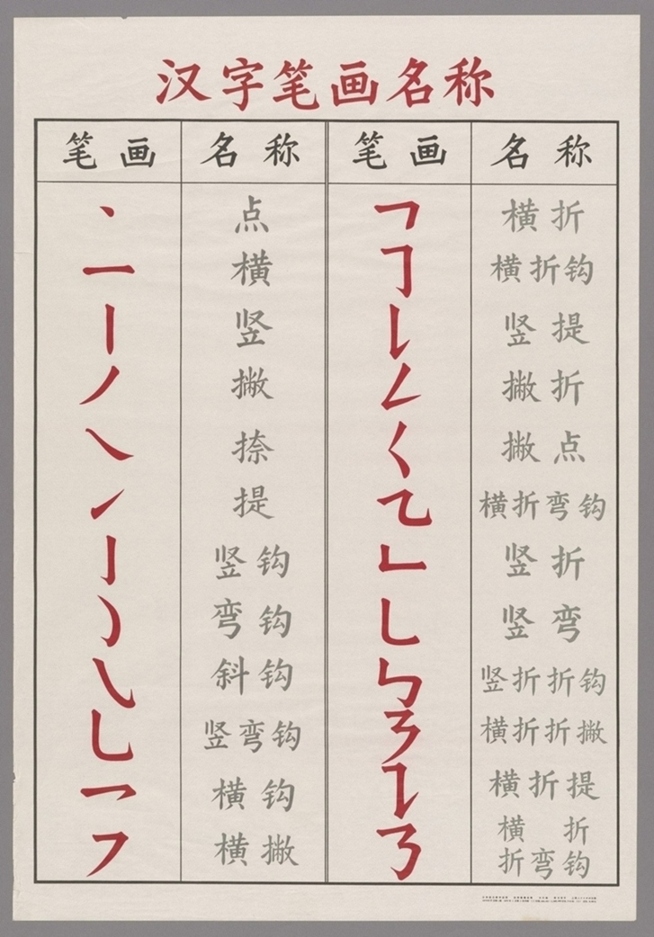 汉字笔画名称
笔画 名称 笔画 名称
㇔ 点 ㇕ 横折
㇐ 横 ㇆ 横折钩
㇑ 竖 ㇙ 竖提
㇒ 撇 ㇜ 撇折
㇏ 捺 ㇛ 撇点
㇀ 提 ㇈ 横折弯钩
㇚ 竖钩 ㇗ 竖折
㇁ 弯钩 ㇄ 竖弯
㇂ 斜钩 ㇉ 竖折折钩
㇟ 竖弯钩 ㇋ 横折折撇
㇖ 横钩 ㇊ 横折提
㇇ 横撇 ㇡ 横折
折弯钩